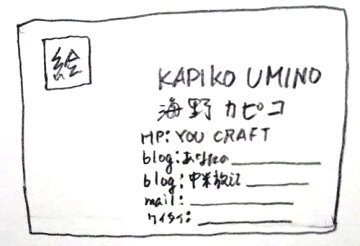 絵
KAPIKO UMINO
海野 カピコ
HP: YOU CRAFT
blog: あなたの
blog: 中米放浪
mail:
ケイタイ: